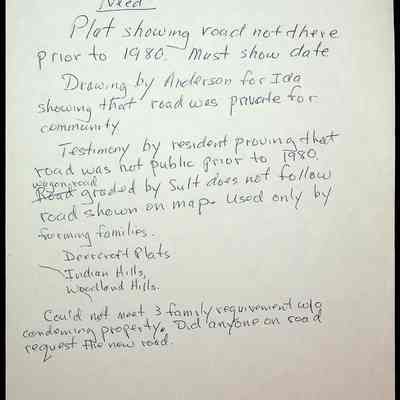 Need
Plat showing road not there
prior to 1980. Must show date
Drawing by Anderson for Ida
showing that road was private for
community
Testimony by resident proving that
road was not public prior to 1980.
wagon road
Road graded by Sult does not follow
road shown on map. Used only by
farming families.
Deercroft Plats
Indian Hills,
Woodland Hills.
Could not meet 3 family requirement w/o
condeming property. Did anyone on road
request the new road.